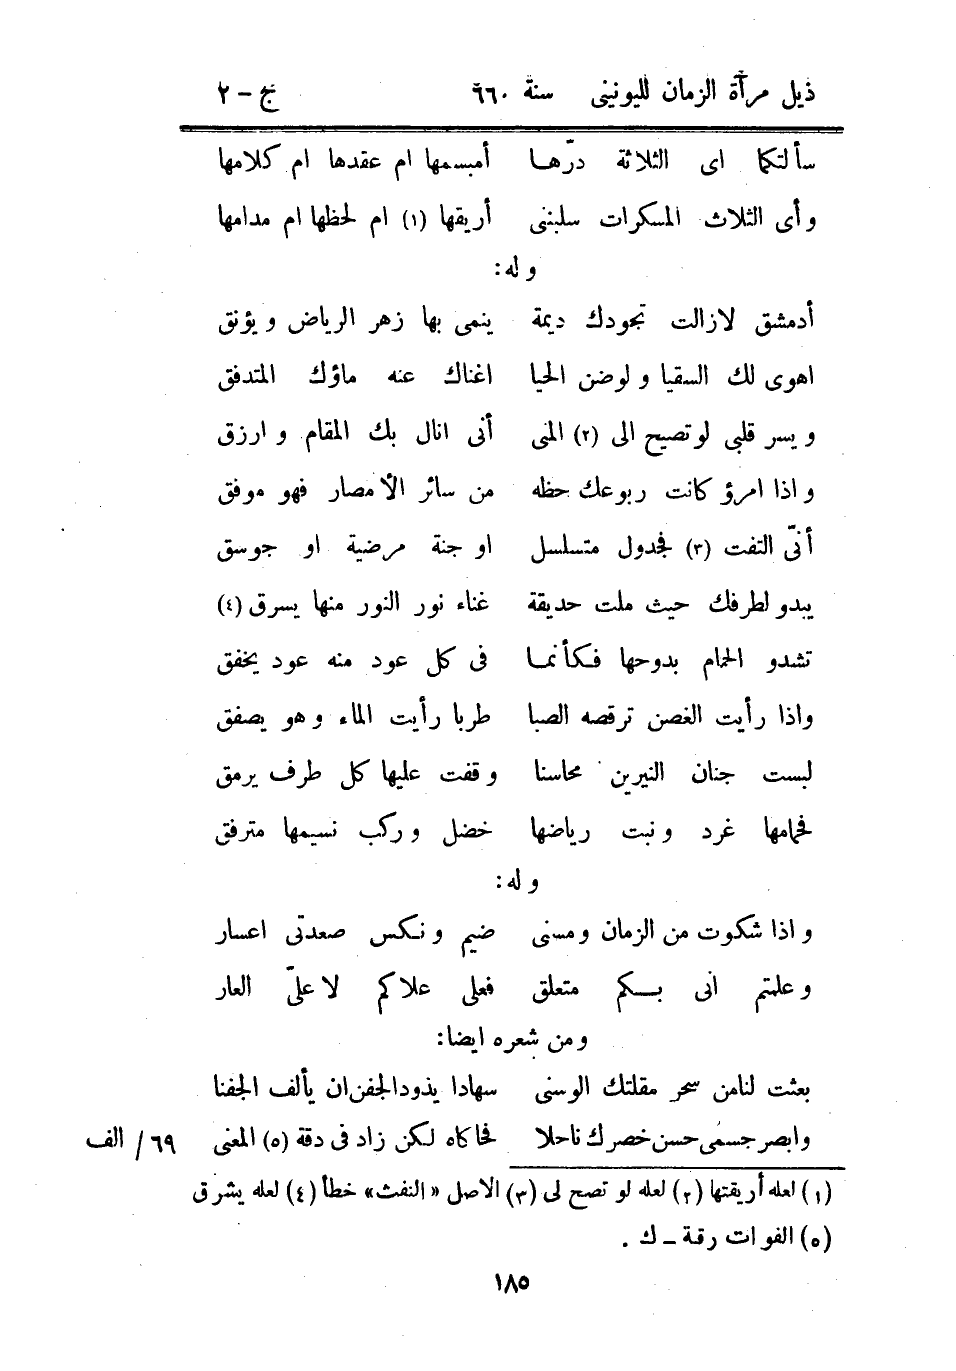 ذيل مرآة الزمان لليونينى سنة ٦٦٠ ج – ٢
سألتكما اى الثلاثة درّها أمبسمها ام عقدها ام كلامها
وأى الثلاث المسكرات سلبنى أريقها (١) ام لحظها ام مدامها
وله:
أدمشق لازالت تجودك ديمة ينمى بها زهر الرياض ويؤنق
اهوى لك السقيا ولوضن الحيا اغناك عنه ماؤك المتدفق
ويسر قلبى لوتصيح الى (٢) المنى أنى انال بك المقام وارزق
واذا امرؤ كانت ربوعك حظه من سائر الأمصار فهو موفق
أنّى التفت (٣) فجدول متسلسل او جنة مرضية او جوسق
يبدو لطرفك حيث ملت حديقة غناء نور النور منها يسرق (٤)
تشدو الحمام بدوحها فكأنما فى كل عود منه عود يخفق
واذا رأيت الغصن ترقصه الصبا طربا رأيت الماء وهو يصفق
لبست جنان النيرين محاسنا وقفت عليها كل طرف يرمق
فحمامها غرد ونبت رياضها خضل وركب نسيمها مترفق
وله:
واذا شكوت من الزمان ومسنى ضيم ونكس صعدتى اعسار
وعلمتم انى بكم متعلق فعلى علاكم لا علىّ العار
ومن شعره ايضا:
بعثت لنامن سحر مقلتك الوسنى سهادا يذودالجفن ان يألف الجفنا
وابصر جسمى حسن خصرك ناحلا فحاكاه لكن زاد فى دقة (٥) المعنى ٦٩/ الف
(١) لعله أريقتها (٢) لعله لو تصح لى (٣) الاصل «النفث» خطأ (٤) لعله يشرق
(٥) الفوات رقة – ك .
١٨٥